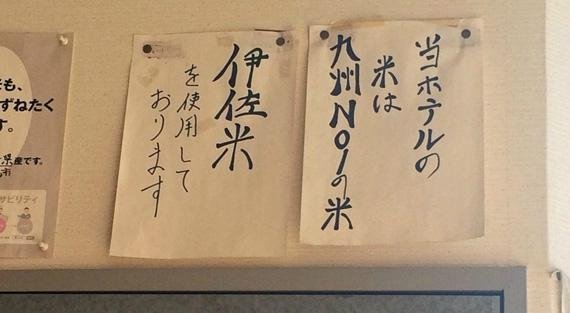 当ホテルの
米は
九州No1の米
伊佐米
を使用して
おります
も、
ずねたく
す。
県産です。
市
サビリティ